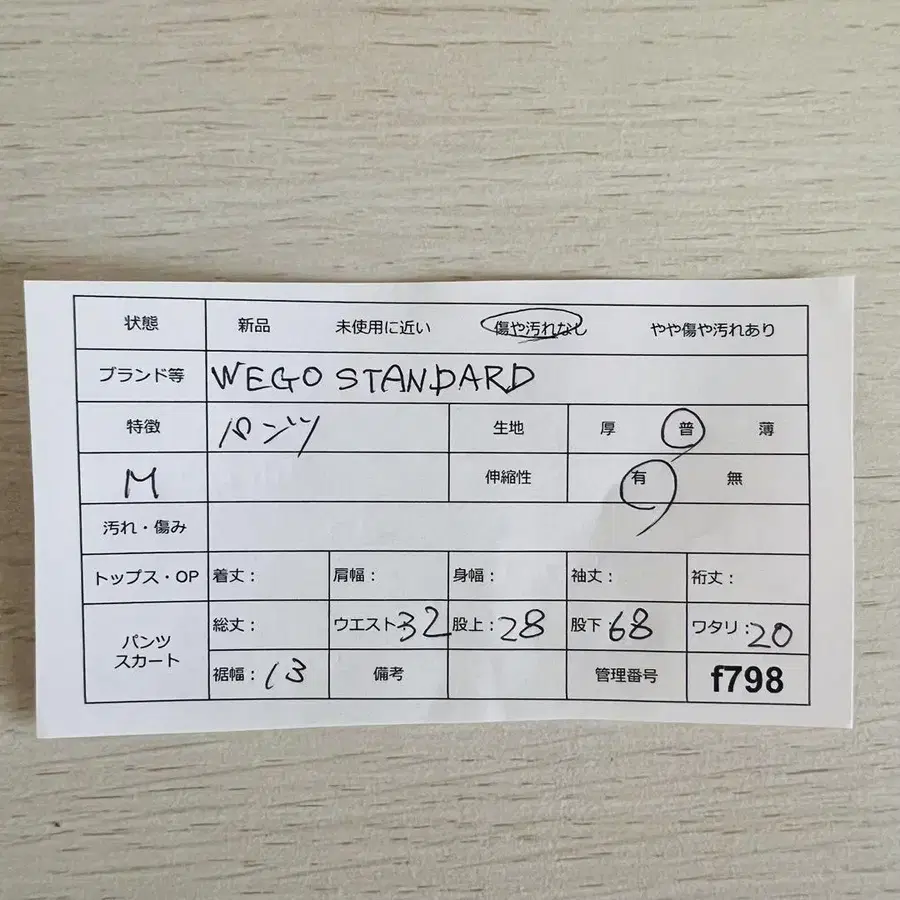 状態 新品 未使用に近い 傷や汚れなし やや傷や汚れあり
ブランド等 WEGO STANDARD
特徴 パンツ 生地 厚 普 薄
M 伸縮性 有 無
汚れ・傷み
トップス・OP 着丈: 肩幅: 身幅: 袖丈: 裄丈:
パンツ スカート
総丈: ウエスト:32 股上:28 股下:68 ワタリ:20
裾幅:13 備考 管理番号 f798